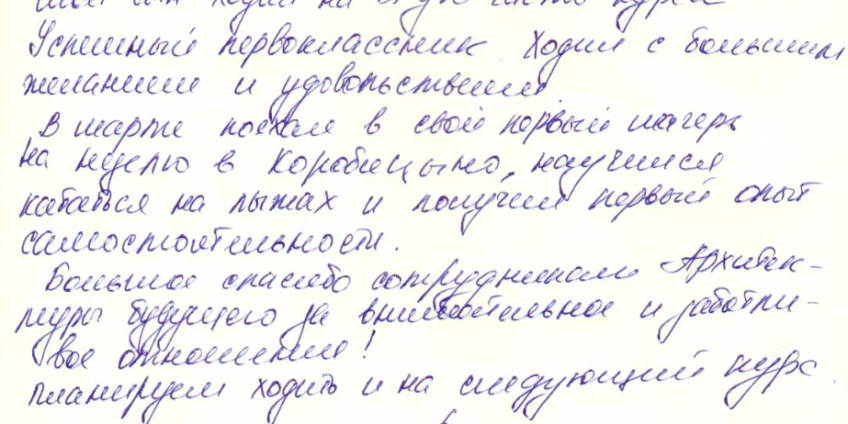 ходил на курс
Успешный первоклассник. Ходил с большим
желанием и удовольствием
В марте поехал в свой первый лагерь
на неделю в Коробицыно, научился
кататься на лыжах и получил первый опыт
самостоятельности.
Большое спасибо сотрудникам Архитек-
туры будущего за внимательное и заботли-
вое отношение!
Планируем ходить и на следующий курс.